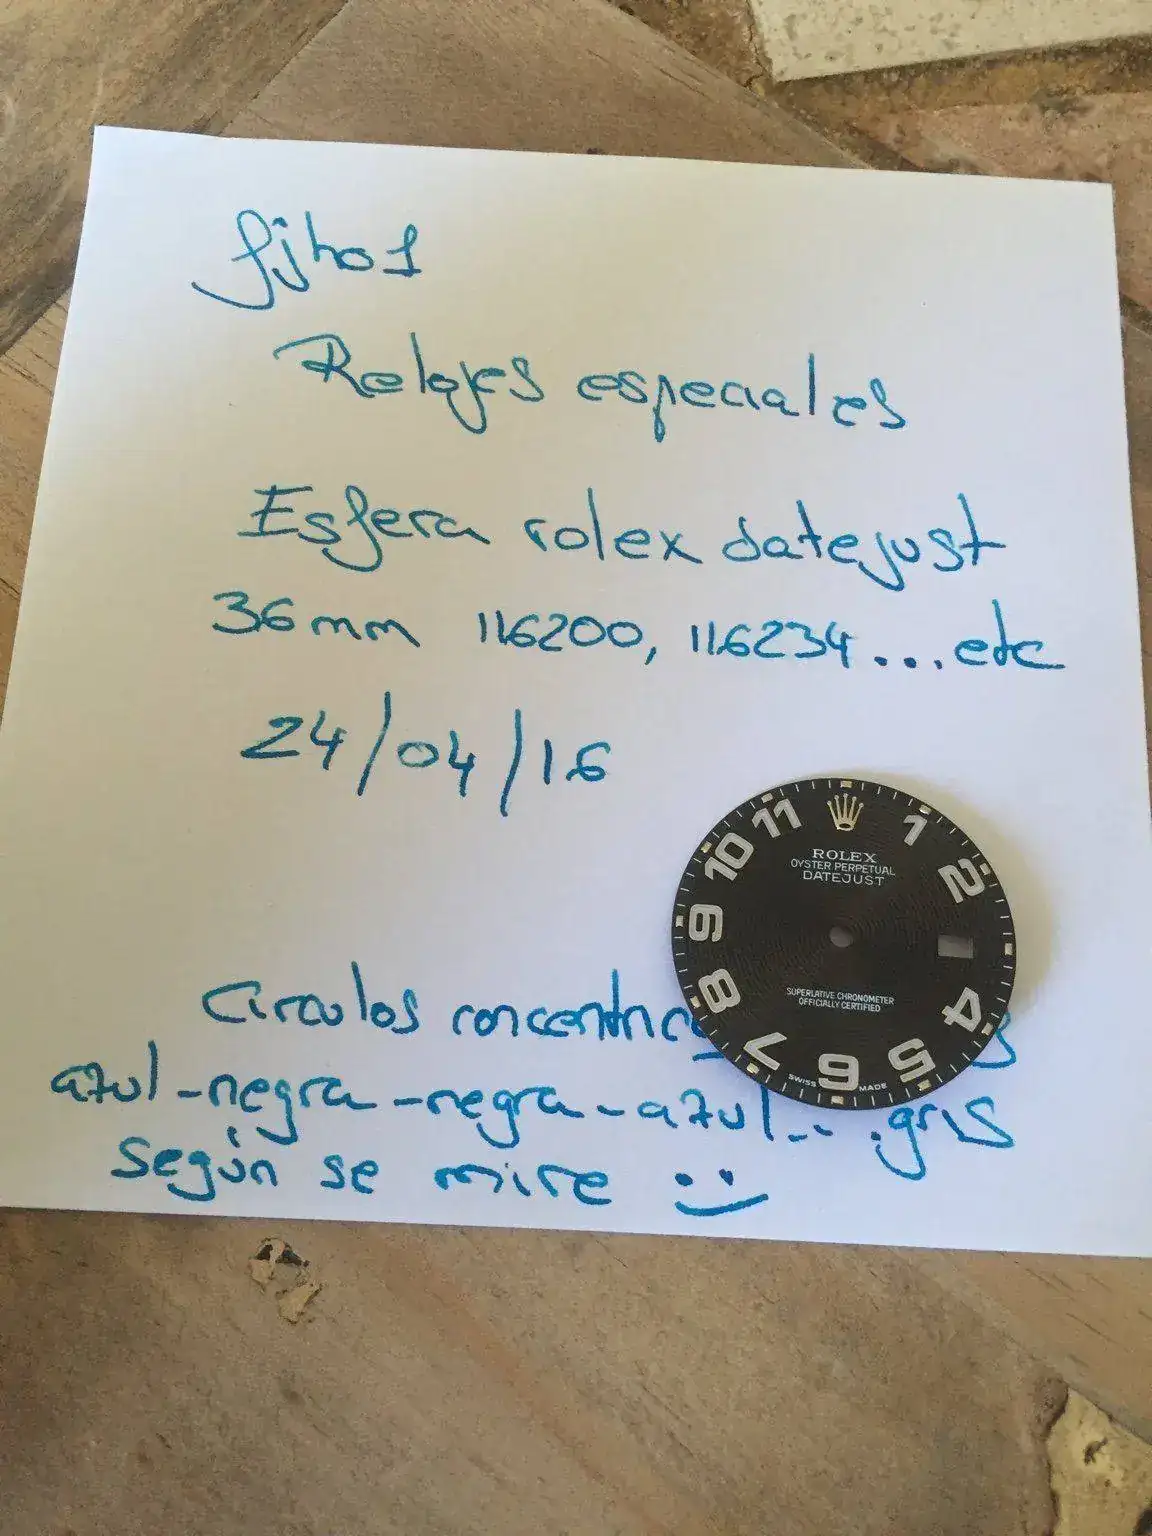 fjho1
Relojes especiales
Esfera rolex datejust
36mm 116200, 116234...etc
24/04/16
11 1
10 2
9
8 4
7 6 5
ROLEX
OYSTER PERPETUAL
DATEJUST
SUPERLATIVE CHRONOMETER
OFFICIALLY CERTIFIED
SWISS MADE
Circulos
azul-negra-negra-azul....gris
según se mire :)